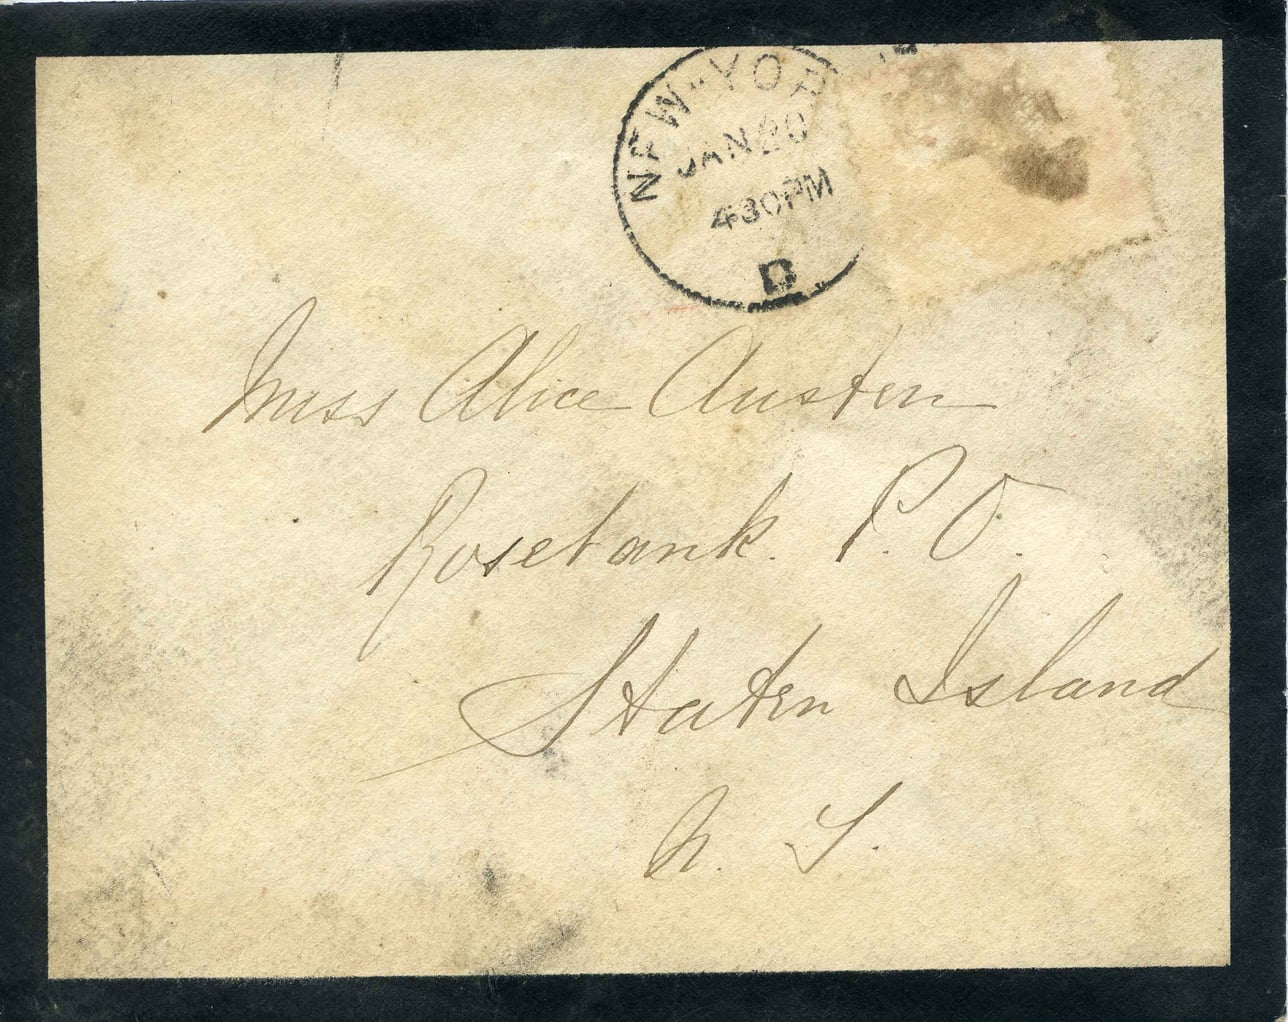 NEW-YOR
JAN 20
430PM
D
Miss Alice Austen
Rosebank P.O.
Staten Island
N. Y.